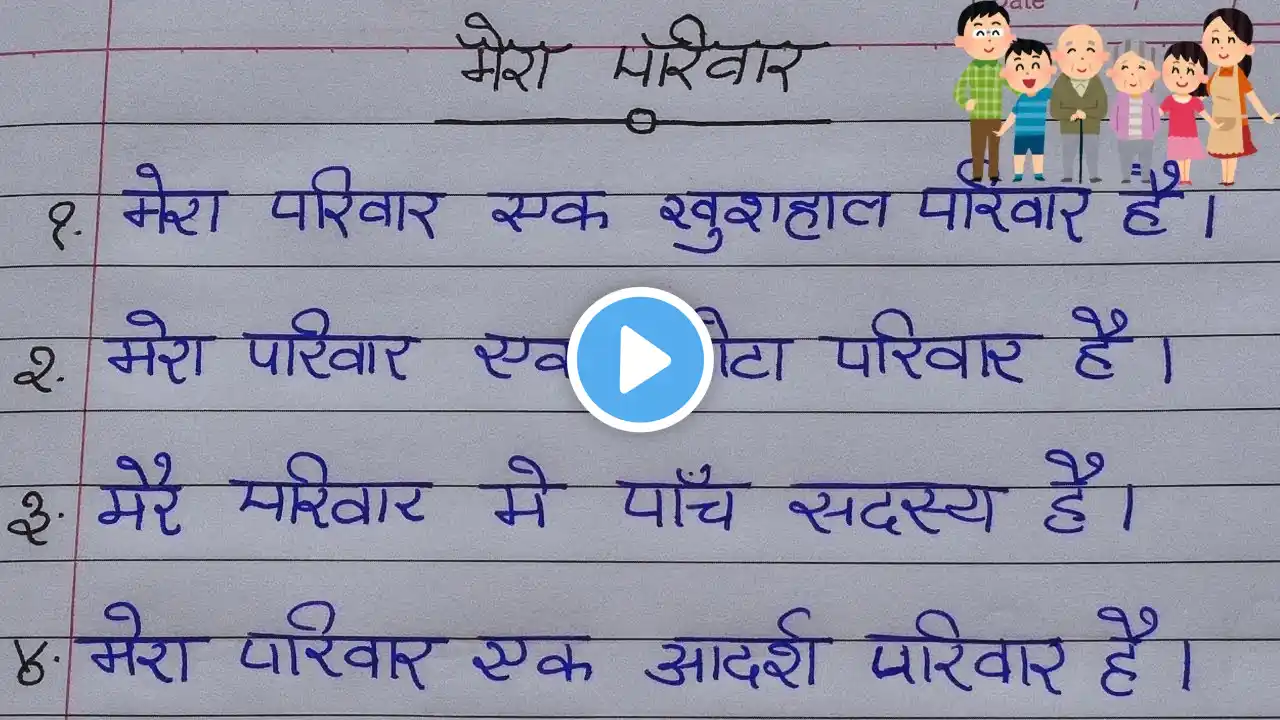 Date / /
मेरा परिवार
१. मेरा परिवार एक खुशहाल परिवार है।
२. मेरा परिवार परिवार है।
३. मेरे परिवार मे पाँच सदस्य है।
४. मेरा परिवार एक आदर्श परिवार है।